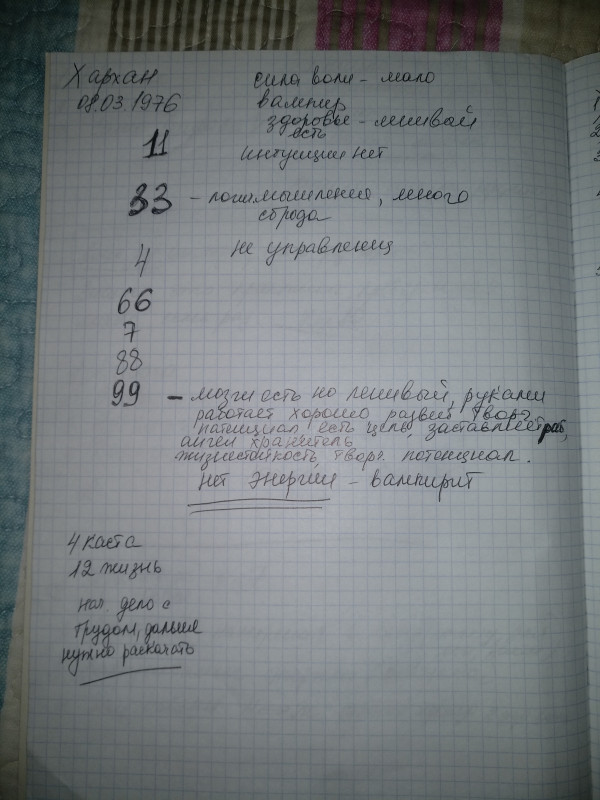 Хархан
08.03.1976
сила воли - мало
вампир
здоровье - ленивай
есть
11
интуиции нет
33 - логик мышления, много
сброда
4
не управленец
66
7
88
99 - мозги есть но ленивый, руками
работает хорошо развит творч.
потенциал есть цель, заставляет раб,
ангел хранитель
жизнестойкость, творч. потенциал.
нет энергии - вампирит
4 каста
12 жизнь
нач. дело с
трудом, дальше
нужно раскачать